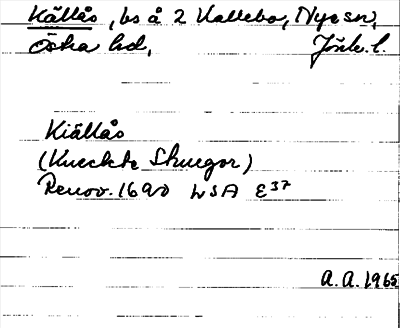 Källås, bs å 2 Kallebo, Nye sn,
Östra hd, Jönk. l.
Kiällås
(Kneckte Skuegor)
Renov. 1690 LSA E37
A.A. 1965